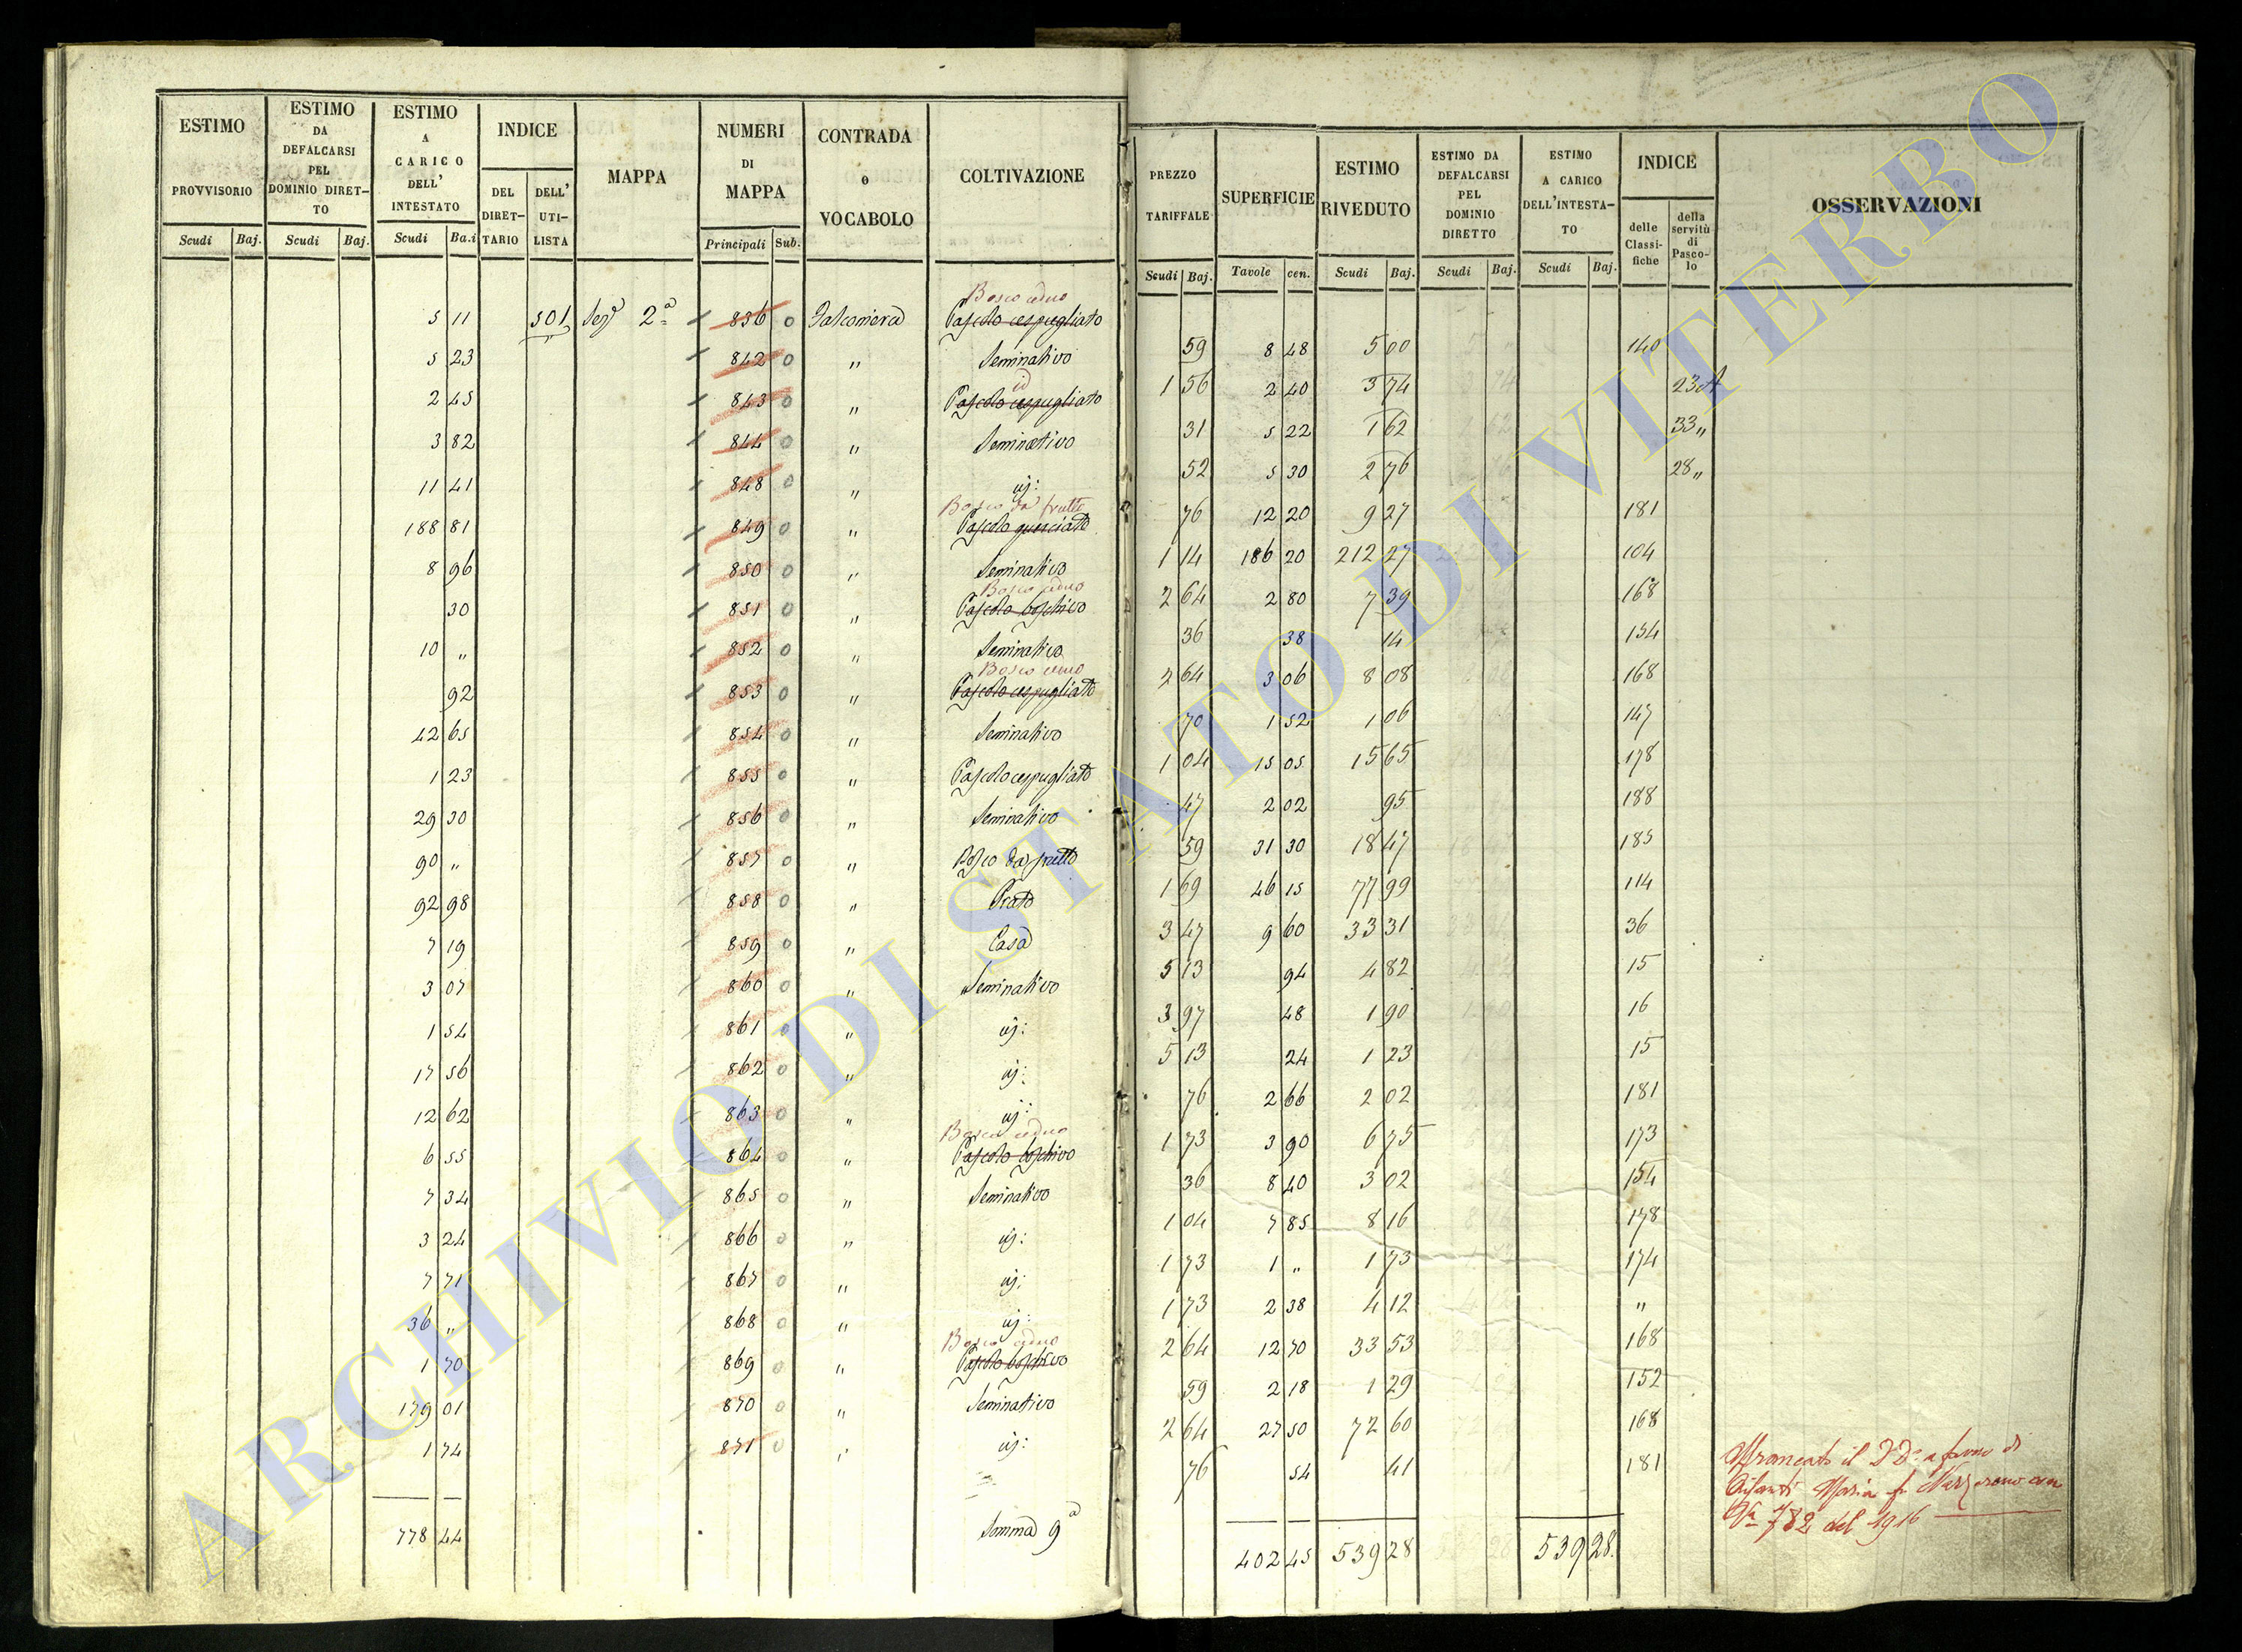 ESTIMO PROVVISORIO Scudi Baj.
ESTIMO DA DEFALCARSI PEL DOMINIO DIRET-TO Scudi Baj.
ESTIMO A CARICO DELL' INTESTATO Scudi Ba.i
INDICE DEL DIRET-TARIO DELL' UTI-LISTA
MAPPA
NUMERI DI MAPPA Principali Sub.
CONTRADA o VOCABOLO
COLTIVAZIONE
PREZZO TARIFFALE Scudi Baj.
SUPERFICIE Tavole cen.
ESTIMO RIVEDUTO Scudi Baj.
ESTIMO DA DEFALCARSI PEL DOMINIO DIRETTO Scudi Baj.
ESTIMO A CARICO DELL'INTESTA-TO Scudi Baj.
INDICE delle Classi-fiche della servitù di Pasco-lo
OSSERVAZIONI
Bosco ceduo
5 11 501 2ª 836 0 Pascolo cespugliato 59 8 48 5 00 140
5 23 842 0 " Seminativo 1 56 2 40 3 74 23
id
2 45 843 0 " Pascolo cespugliato 31 5 22 1 62 33 "
3 82 844 0 " Seminativo 52 5 30 2 76 28 "
11 41 848 0 " id: 76 12 20 9 27 181
Bosco da frutto
188 81 849 0 " Pascolo querciato 1 14 186 20 212 27 104
8 96 850 0 " Seminativo 2 64 2 80 7 39 168
Bosco ceduo
30 851 0 " Pascolo boschivo 36 38 14 154
10 " 852 0 " Seminativo 2 64 3 06 8 08 168
Bosco ceduo
92 853 0 " Pascolo cespugliato 70 1 52 1 06 147
42 65 854 0 " Seminativo 1 04 15 05 15 65 178
1 23 855 0 " Pascolo cespugliato 47 2 02 95 188
29 30 856 0 " Seminativo 59 31 30 18 47 185
90 " 857 0 " Bosco da frutto 1 69 46 15 77 99 114
92 98 858 0 " Prato 3 47 9 60 33 31 36
7 19 859 0 " Casa 5 13 94 4 82 15
3 07 860 0 " Seminativo 3 97 48 1 90 16
1 54 861 0 " id: 5 13 24 1 23 15
17 56 862 0 " id: 76 2 66 2 02 181
12 62 863 0 " id: 1 73 3 90 6 75 173
Bosco ceduo
6 55 864 0 " Pascolo boschivo 36 8 40 3 02 154
7 34 865 0 " Seminativo 1 04 7 85 8 16 178
3 24 866 0 " id: 1 73 1 " 1 73 174
7 71 867 0 " id: 1 73 2 38 4 12 "
36 " 868 0 " id: 2 64 12 70 33 53 168
Bosco ceduo
1 70 869 0 " Pascolo boschivo 59 2 18 1 29 152
179 01 870 0 " Seminativo 2 64 27 50 72 60 168
1 74 871 0 " id: 76 54 41 181
Affrancato il D D° a favore di
Maria fu
N° 782 del 1916
778 44 Somma 9ª 402 45 539 28 539 28
ARCHIVIO DI STATO DI VITERBO